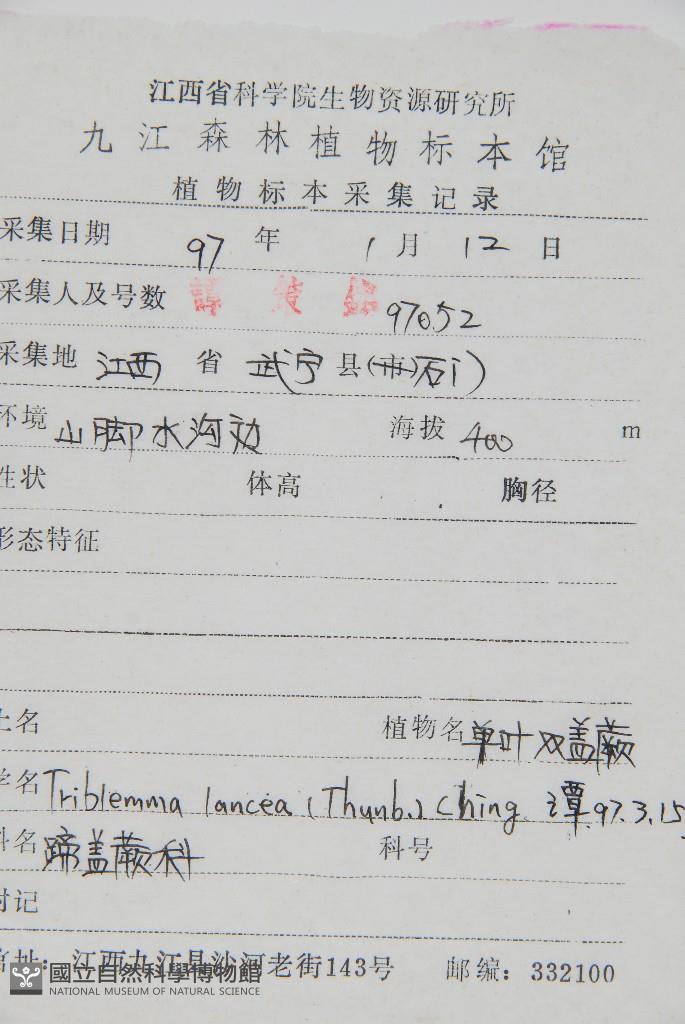 江西省科学院生物资源研究所
九江森林植物标本馆
植物标本采集记录
采集日期 97 年 1 月 12 日
采集人及号数 譚策銘 97052
采集地 江西 省 武宁 县(市)石门
环境 山脚水沟边 海拔 400 m
性状 体高 胸径
形态特征
土名 植物名 单叶双盖蕨
学名 Triblemma lancea (Thunb.) Ching 谭.97.3.15
科名 蹄盖蕨科 科号
附记
馆址: 江西九江县沙河老街143号 邮编: 332100
國立自然科學博物館
NATIONAL MUSEUM OF NATURAL SCIENCE